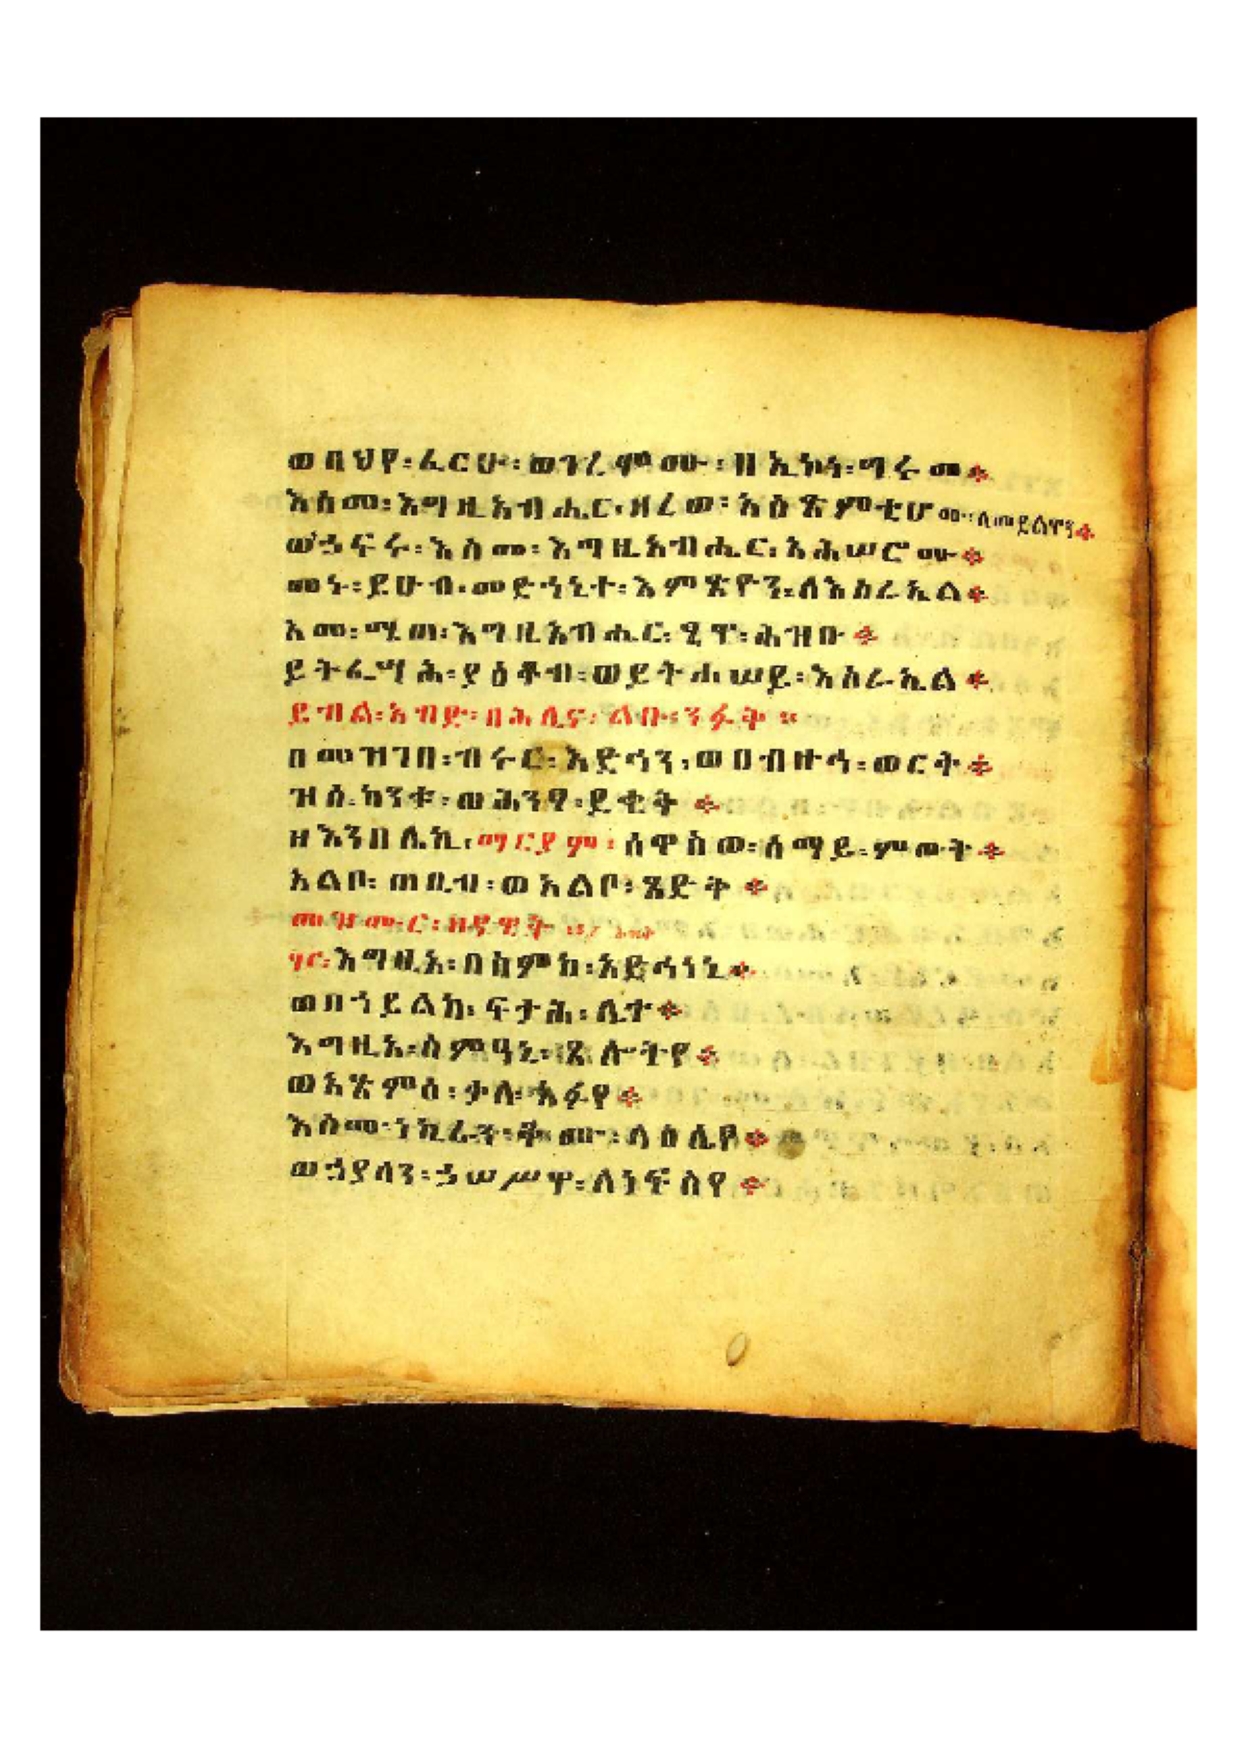 ወበህየ፡ፈርሁ፡ወገረሞሙ፡ዘኢኮነ፡ግሩመ
እስመ፡እግዚአብሔር፡ዘረወ፡አዕጽምቲሆሙ፡ለመደልዋን
ወኃፍሩ፡እስመ፡እግዚአብሔር፡አሕሠሮሙ
መኑ፡ይሁብ፡መድኀኒተ፡እምጽዮን፡ለእስራኤል
አመ፡ሜጠ፡እግዚአብሔር፡ፄዋ፡ሕዝቡ
ይትፌሣሕ፡ያዕቆብ፡ወይትሐሠይ፡እስራኤል
ይብል፡አብድ፡በሕሊና፡ልቡ፡ንፉቅ።
በመዝገበ፡ብሩር፡እድኅን፡ወበብዙኅ፡ወርቅ
ዝሰ፡ከንቱ፡ወሕንፃ፡ደቂቅ
ዘእንበሌኪ፡ማርያም፡ሰዋስወ፡ሰማይ፡ምውት
አልቦ፡ጠቢብ፡ወአልቦ፡ጻድቅ
መዝሙር፡ዘዳዊት
እግዚኦ፡በስምከ፡አድኅነኒ
ወበኀይልከ፡ፍታሕ፡ሊተ
እግዚኦ፡ስምዓኒ፡ጸሎትየ
ወአጽምዕ፡ቃለ፡አፉየ
እስመ፡ነኪራን፡ቆሙ፡ላዕሌየ
ወኃያላን፡ኃሠሥዋ፡ለነፍስየ